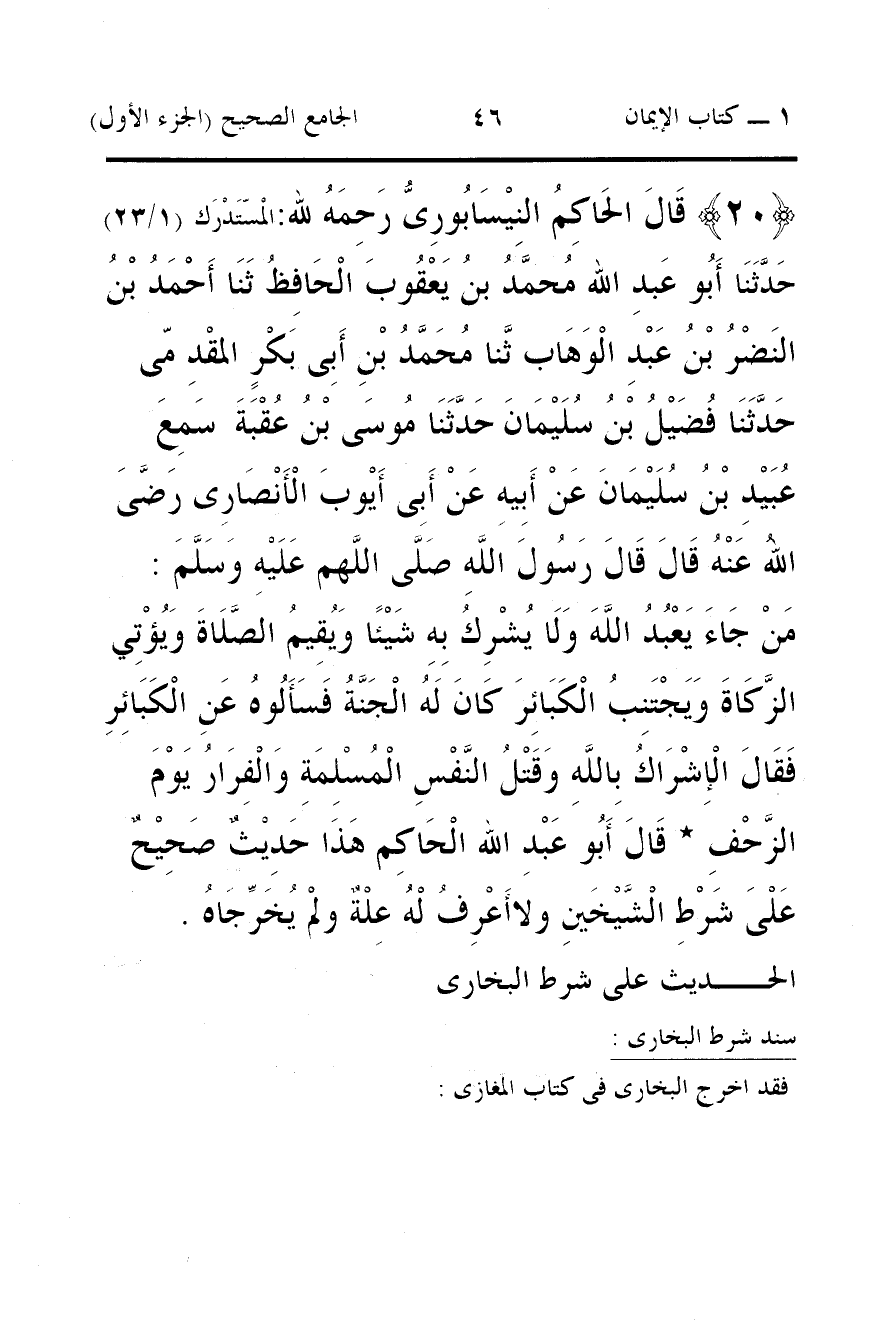 ١ ــ كتاب الإيمان ٤٦ الجامع الصحيح (الجزء الأول)
﴿٢٠﴾ قَالَ الحَاكِمُ النِيْسَابُورِىُّ رَحِمَهُ لله: المْسّتَدْرَك (٢٣/١)
حَدَّثَنَا أَبُو عَبدِ الله مُحمَّدُ بنُ يَعْقُوبَ الْحَافِظُ ثَنَا أَحْمَدُ بْنُ
النَضْرُ بْنُ عَبْدِ الْوَهَابِ ثَّنا مُحَمَّدُ بْنِ أَبِى بَكْرٍ المقْدِ مّى
حَدَّثَنَا فُضَيْلُ بْنُ سُلَيْمَانَ حَدَّثَنَا مُوسَى بْنُ عُقْبَةَ سَمِعَ
عُبَيْدِ بْنُ سُلَيْمَانَ عَنْ أَبِيهِ عَنْ أَبِى أَيْوبَ الْأَنْصارِى رَضَّىَ
اللهُ عَنْهُ قَالَ قَالَ رَسُولَ اللَّهِ صَلَّى اللهم عَلَيْهِ وَسَلَّمَ :
مَنْ جَاءَ يَعْبُدُ اللَّهَ وَلَا يُشْرِكُ بِهِ شَيْئًا وَيُقِيمُ الصَّلَاةَ وَيُؤْتِي
الزَّكَاةَ وَيَجْتَنِبُ الْكَبَائِرَ كَانَ لَهُ الْجَنَّةُ فَسَأَلُوهُ عَنِ الْكَبَائِرِ
فَقَالَ الْإِشْرَاكُ بِاللَّهِ وَقَتْلُ النَّفْسِ الْمُسْلِمَةِ وَالْفِرَارُ يَوْمَ
الزَّحْفِ * قَالَ أَبُو عَبْدِ الله الْحَاكِمِ هَذَا حَدِيْثٌ صَحِيْحٌ
عَلْىَ شَرْطِ الْشَّيْخَينِ ولاأَعْرِفُ لْهُ عِلْةٌ ولْم يُخَرِّجَاهُ .
الحـــــديث على شرط البخارى
سند شرط البخارى :
فقد اخرج البخارى فى كتاب المغازى :